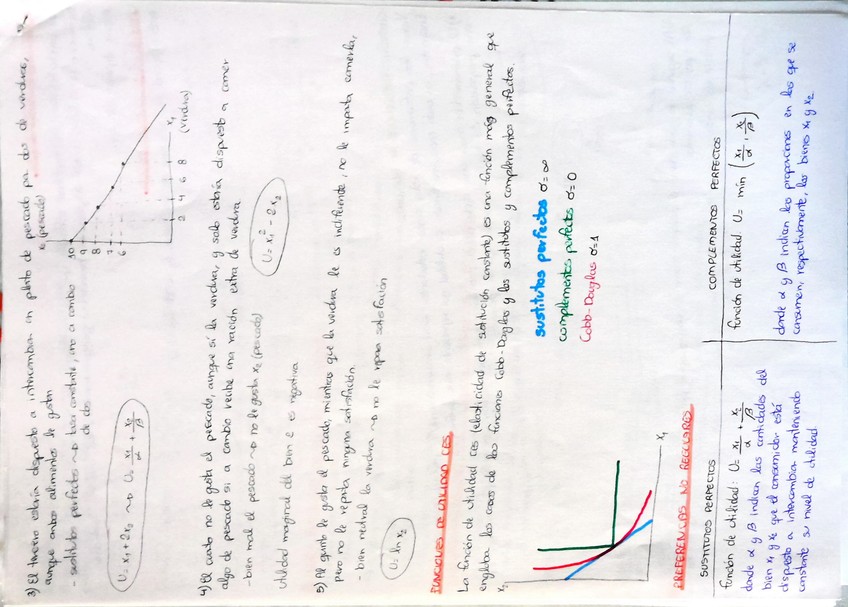 3) El tercero estaría dispuesto a intercambiar un plato de pescado por dos de verduras,
aunque ambos alimentos le gustan
- sustitutos perfectos ~> tasa constante, uno a cambio
de dos
U = x1 + 2x2 ~> U = x1/α + x2/β
x2 (pescado)
10
9
8
7
6
2 4 6 8
x1
(verdura)
4) Al cuarto no le gusta el pescado, aunque sí la verdura, y solo estaría dispuesto a comer
algo de pescado si a cambio recibe una ración extra de verdura
- bien mal el pescado ~> no le gusta x2 (pescado)
utilidad marginal del bien 2 es negativa
U = x1² - 2x2
5) Al quinto le gusta el pescado, mientras que la verdura le es indiferente, no le importa comerla,
pero no le reporta ninguna satisfacción.
- bien neutral la verdura ~> no le reporta satisfacción
U = ln x2
FUNCIONES DE UTILIDAD CES
La función de utilidad CES (elasticidad de sustitución constante) es una función más general que
engloba los casos de las funciones Cobb-Douglas y los sustitutos y complementos perfectos.
x2
x1
sustitutos perfectos σ=∞
complementos perfectos σ=0
Cobb-Douglas σ=1
PREFERENCIAS NO REGULARES
SUSTITUTOS PERFECTOS
función de utilidad: U = x1/α + x2/β
donde α y β indican las cantidades del
bien x1 y x2 que el consumidor está
dispuesto a intercambiar manteniendo
constante su nivel de utilidad
COMPLEMENTOS PERFECTOS
función de utilidad: U = min (x1/α, x2/β)
donde α y β indican las proporciones en las que se
consumen, respectivamente, los bienes x1 y x2